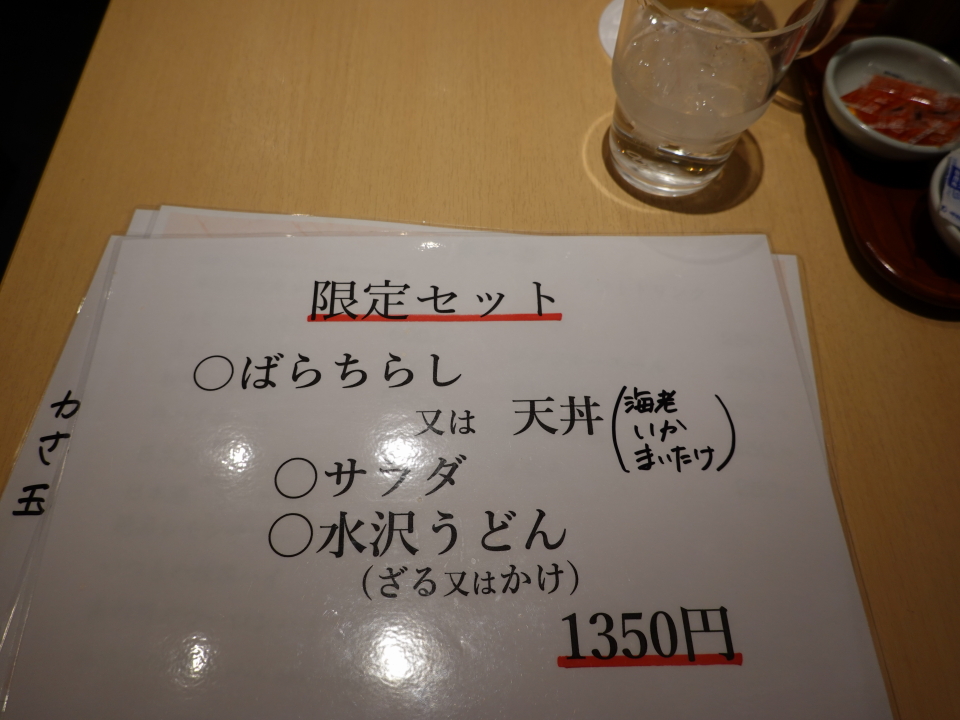 限定セット
○ばらちらし
又は 天丼(海老
いか
まいたけ)
○サラダ
○水沢うどん
(ざる又はかけ)
1350円
カ
さ
玉